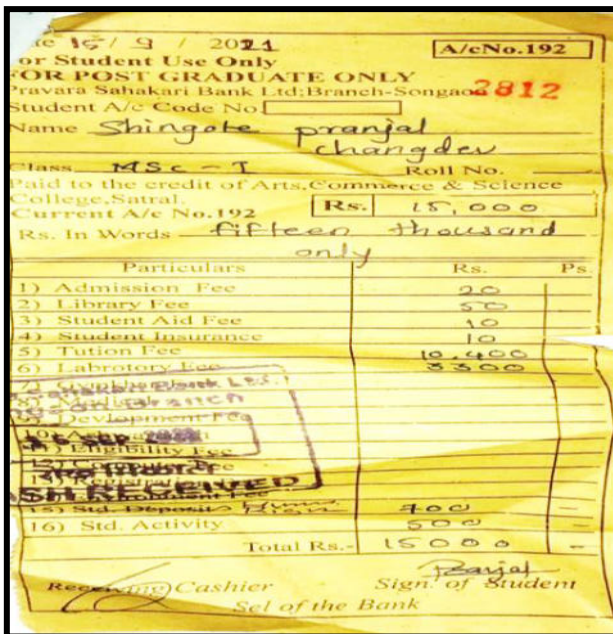 15/ 9 / 2021
A/cNo.192
or Student Use Only
FOR POST GRADUATE ONLY
Pravara Sahakari Bank Ltd;Branch-Songaon
2812
Student A/c Code No.
Name Shingote pranjal
changdev
Class MSc - I Roll No.
Paid to the credit of Arts,Commerce & Science
College,Satral.
Current A/c No.192 Rs. 15,000
Rs. In Words fifteen thousand
only
Particulars Rs. Ps.
1) Admission Fee 20
2) Library Fee 50
3) Student Aid Fee 10
4) Student Insurance 10
5) Tution Fee 10,400
6) Labrotory Fee 3300
Devlopment Fee
11) Eligibility Fee
15) Std. Deposit 700 -
16) Std. Activity 500 -
Total Rs.- 15000 -
Receiving Cashier Sign. of Student
Sel of the Bank